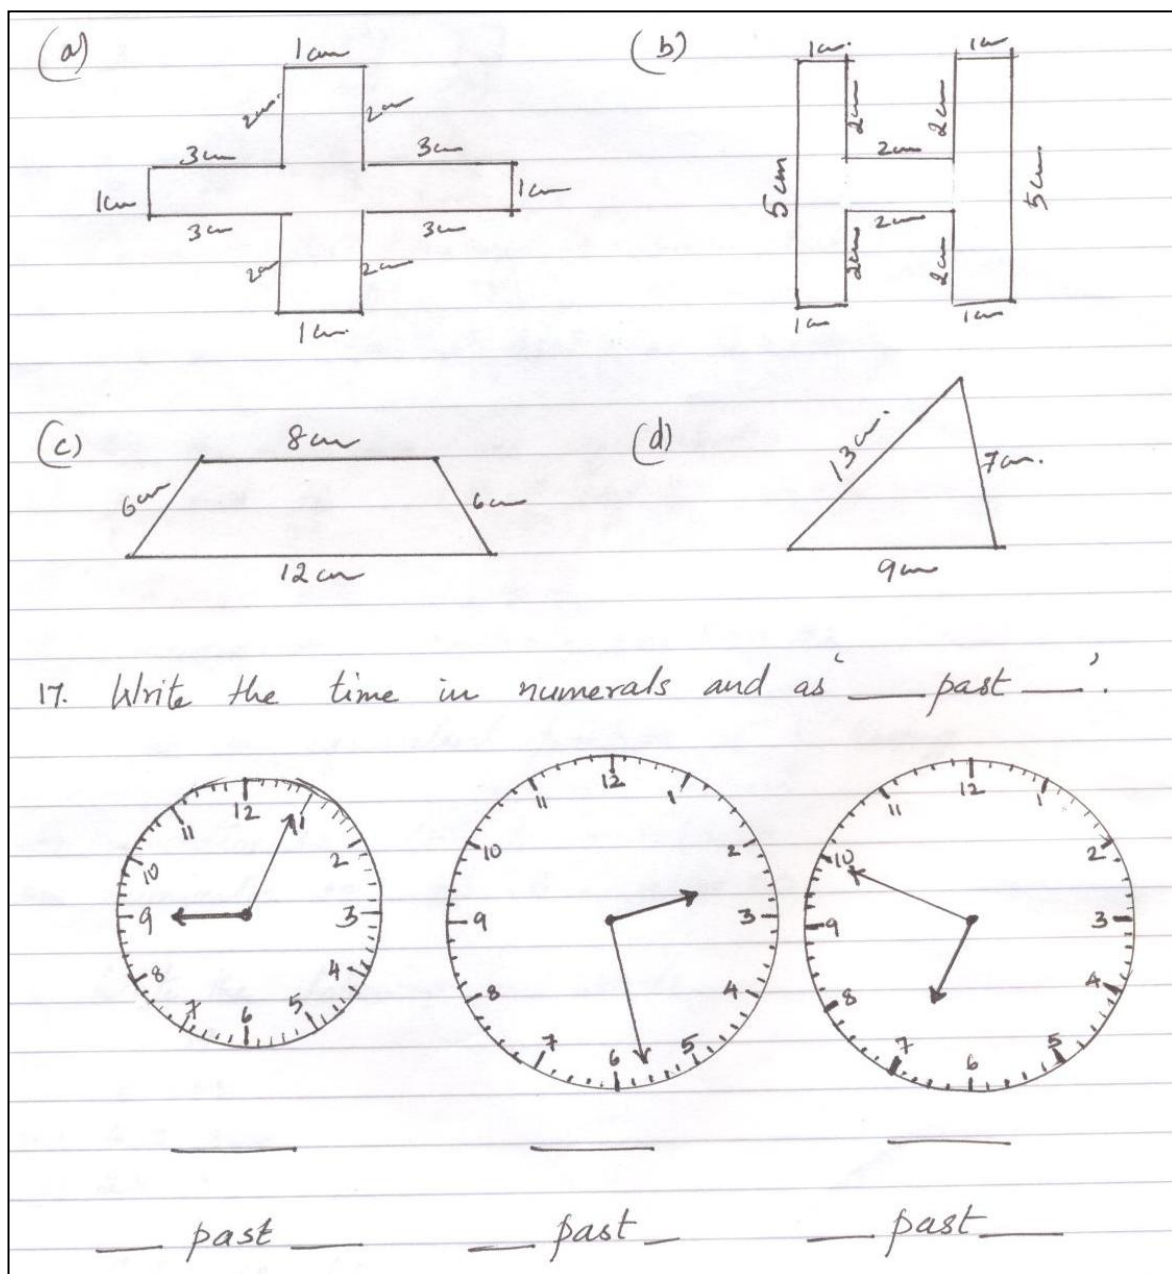 (a) (b)
1cm 1cm. 1cm
2cm. 2cm 2cm 2cm
3cm 3cm 2cm
1cm 1cm 5cm 5cm.
3cm 3cm 2cm
2cm 2cm 2cm 2cm
1cm. 1cm 1cm
(c) (d)
8cm 13cm. 7cm.
6cm 6cm
12cm 9cm
17. Write the time in numerals and as '___ past ___'.
12 1 2 3 4 5 6 7 8 9 10 11
12 1 2 3 4 5 6 7 8 9 10 11
12 1 2 3 4 5 6 7 8 9 10 11
___ past ___ ___ past ___ ___ past ___